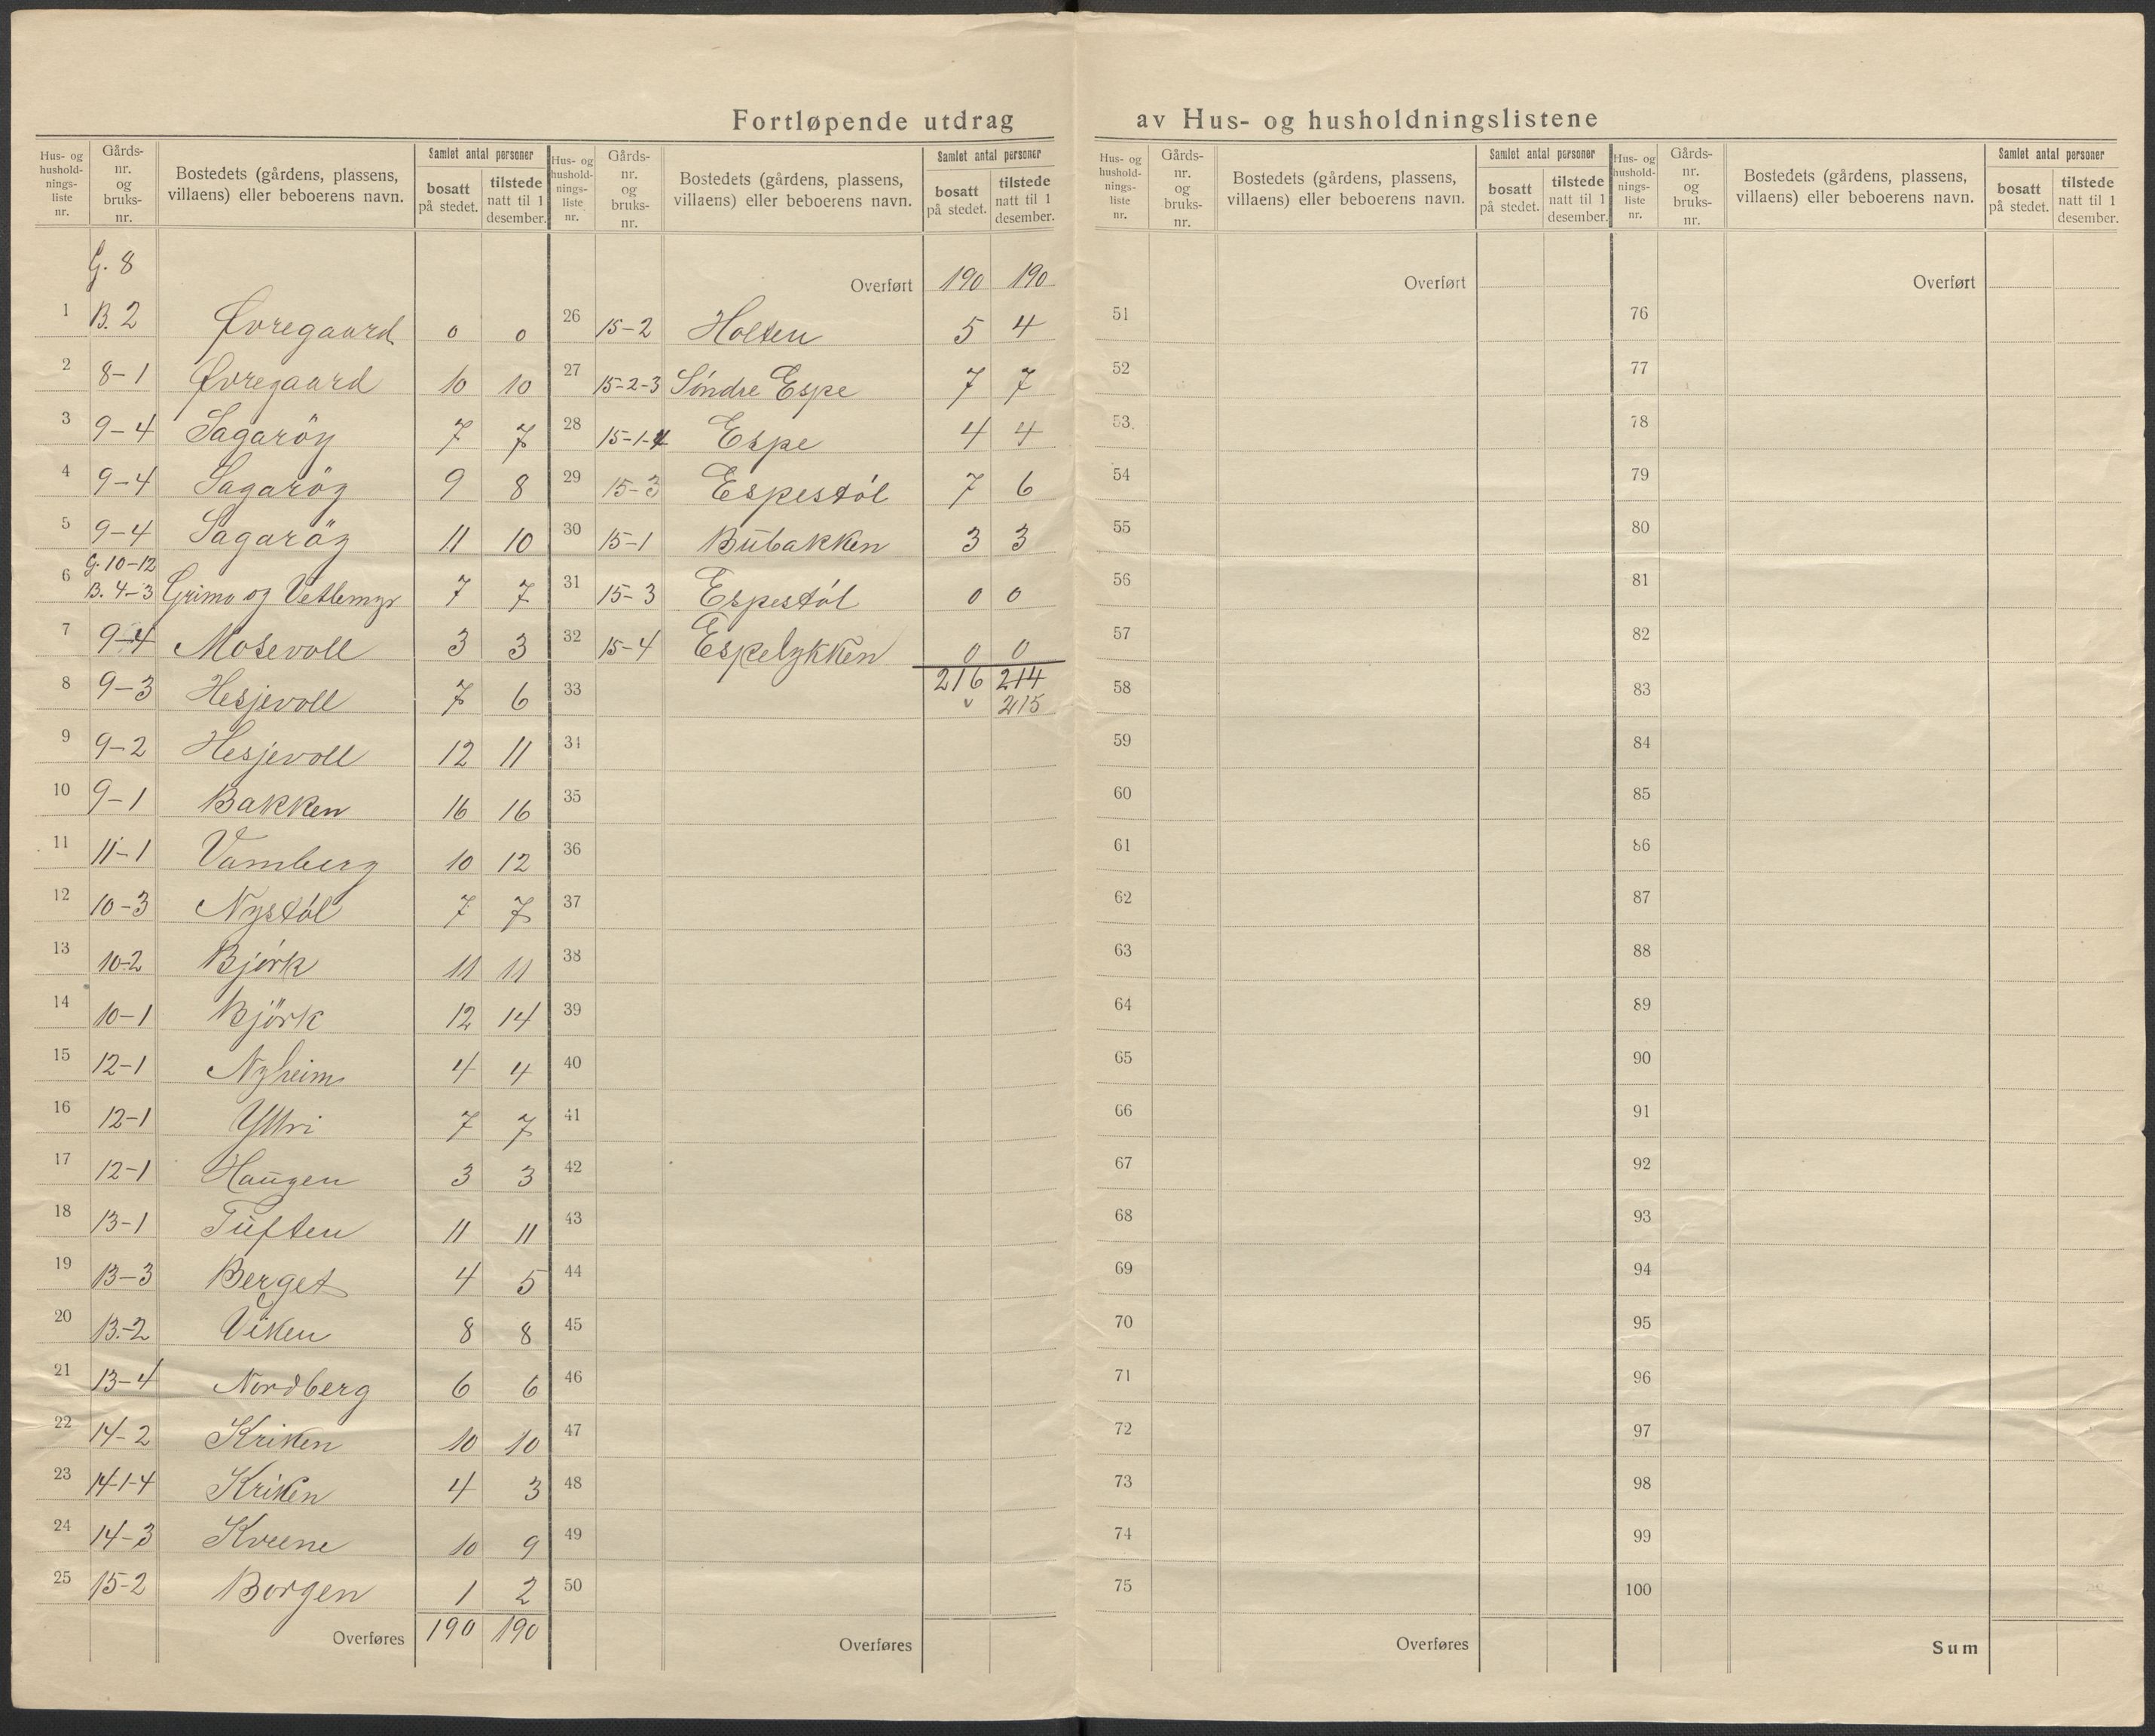 Fortløpende utdrag av Hus- og husholdningslistene
Hus- og hushold- nings- liste nr. | Gårds- nr. og bruks- nr. | Bostedets (gårdens, plassens, villaens) eller beboerens navn. | Samlet antal personer | bosatt på stedet. | tilstede natt til 1 desember.
G. 8
1 B. 2 Øvregaard 0 0
2 8-1 Øvregaard 10 10
3 9-4 Sagaröy 7 7
4 9-4 Sagaröy 9 8
5 9-4 Sagaröy 11 10
G. 10-12
6 B. 4-3 Grimo og Vetlemyr 7 7
7 9-4 Mosevoll 3 3
8 9-3 Hesjevoll 7 6
9 9-2 Hesjevoll 12 11
10 9-1 Bakken 16 16
11 11-1 Vamberg 10 12
12 10-3 Nystöl 7 7
13 10-2 Björk 11 11
14 10-1 Björk 12 14
15 12-1 Nyheim 4 4
16 12-1 Yttri 7 7
17 12-1 Haugen 3 3
18 13-1 Tuften 11 11
19 13-3 Berget 4 5
20 13-2 Viken 8 8
21 13-4 Nordberg 6 6
22 14-2 Kriken 10 10
23 14-1-4 Kriken 4 3
24 14-3 Kvene 10 9
25 15-2 Borgen 1 2
Overføres 190 190
Hus- og hushold- nings- liste nr. | Gårds- nr. og bruks- nr. | Bostedets (gårdens, plassens, villaens) eller beboerens navn. | Samlet antal personer | bosatt på stedet. | tilstede natt til 1 desember.
Overført 190 190
26 15-2 Holten 5 4
27 15-2-3 Söndre Espe 7 7
28 15-1-4 Espe 4 4
29 15-3 Espestöl 7 6
30 15-1 Bubakken 3 3
31 15-3 Espestöl 0 0
32 15-4 Espelykken 0 0
33 216 214
v 215
34
35
36
37
38
39
40
41
42
43
44
45
46
47
48
49
50
Overføres
Hus- og hushold- nings- liste nr. | Gårds- nr. og bruks- nr. | Bostedets (gårdens, plassens, villaens) eller beboerens navn. | Samlet antal personer | bosatt på stedet. | tilstede natt til 1 desember.
Overført
51
52
53
54
55
56
57
58
59
60
61
62
63
64
65
66
67
68
69
70
71
72
73
74
75
Overføres
Hus- og hushold- nings- liste nr. | Gårds- nr. og bruks- nr. | Bostedets (gårdens, plassens, villaens) eller beboerens navn. | Samlet antal personer | bosatt på stedet. | tilstede natt til 1 desember.
Overført
76
77
78
79
80
81
82
83
84
85
86
87
88
89
90
91
92
93
94
95
96
97
98
99
100
Sum